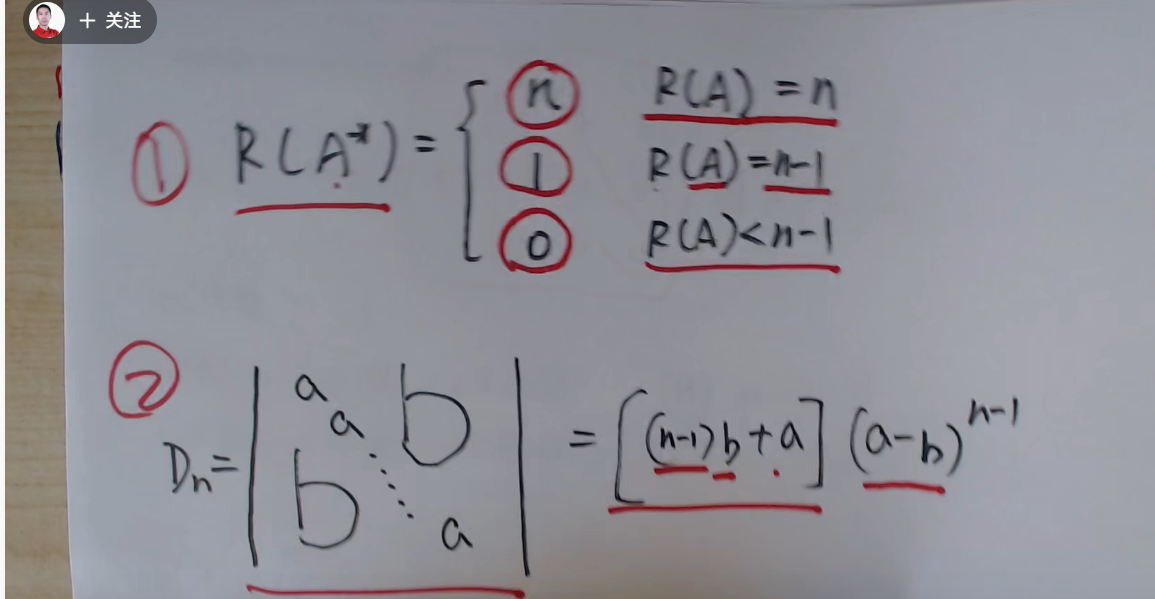 + 关注
① R(A*) = { n R(A) = n
1 R(A) = n-1
0 R(A) < n-1
②
Dn = | a a b b a | = [(n-1)b + a] (a-b)^{n-1}